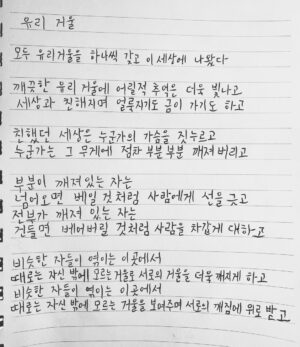 유리 거울
모두 유리거울을 하나씩 갖고 이 세상에 나왔다
깨끗한 유리 거울에 어릴적 추억은 더욱 빛나고
세상과 친해지며 얼룩지기도 금이 가기도 하고
친했던 세상은 누군가의 가슴을 짓누르고
누군가는 그 무게에 점차 부분부분 깨져버리고
부분이 깨져있는 자는
넘어오면 베일 것처럼 사람에게 선을 긋고
전부가 깨져 있는 자는
건들면 베어버릴 것처럼 사람을 차갑게 대하고
비슷한 자들이 엮이는 이곳에서
때로는 자신 밖에 모르는 거울로 서로의 거울을 더욱 깨지게 하고
비슷한 자들이 엮이는 이곳에서
때로는 자신 밖에 모르는 거울을 보여주며 서로의 깨짐에 위로 받고